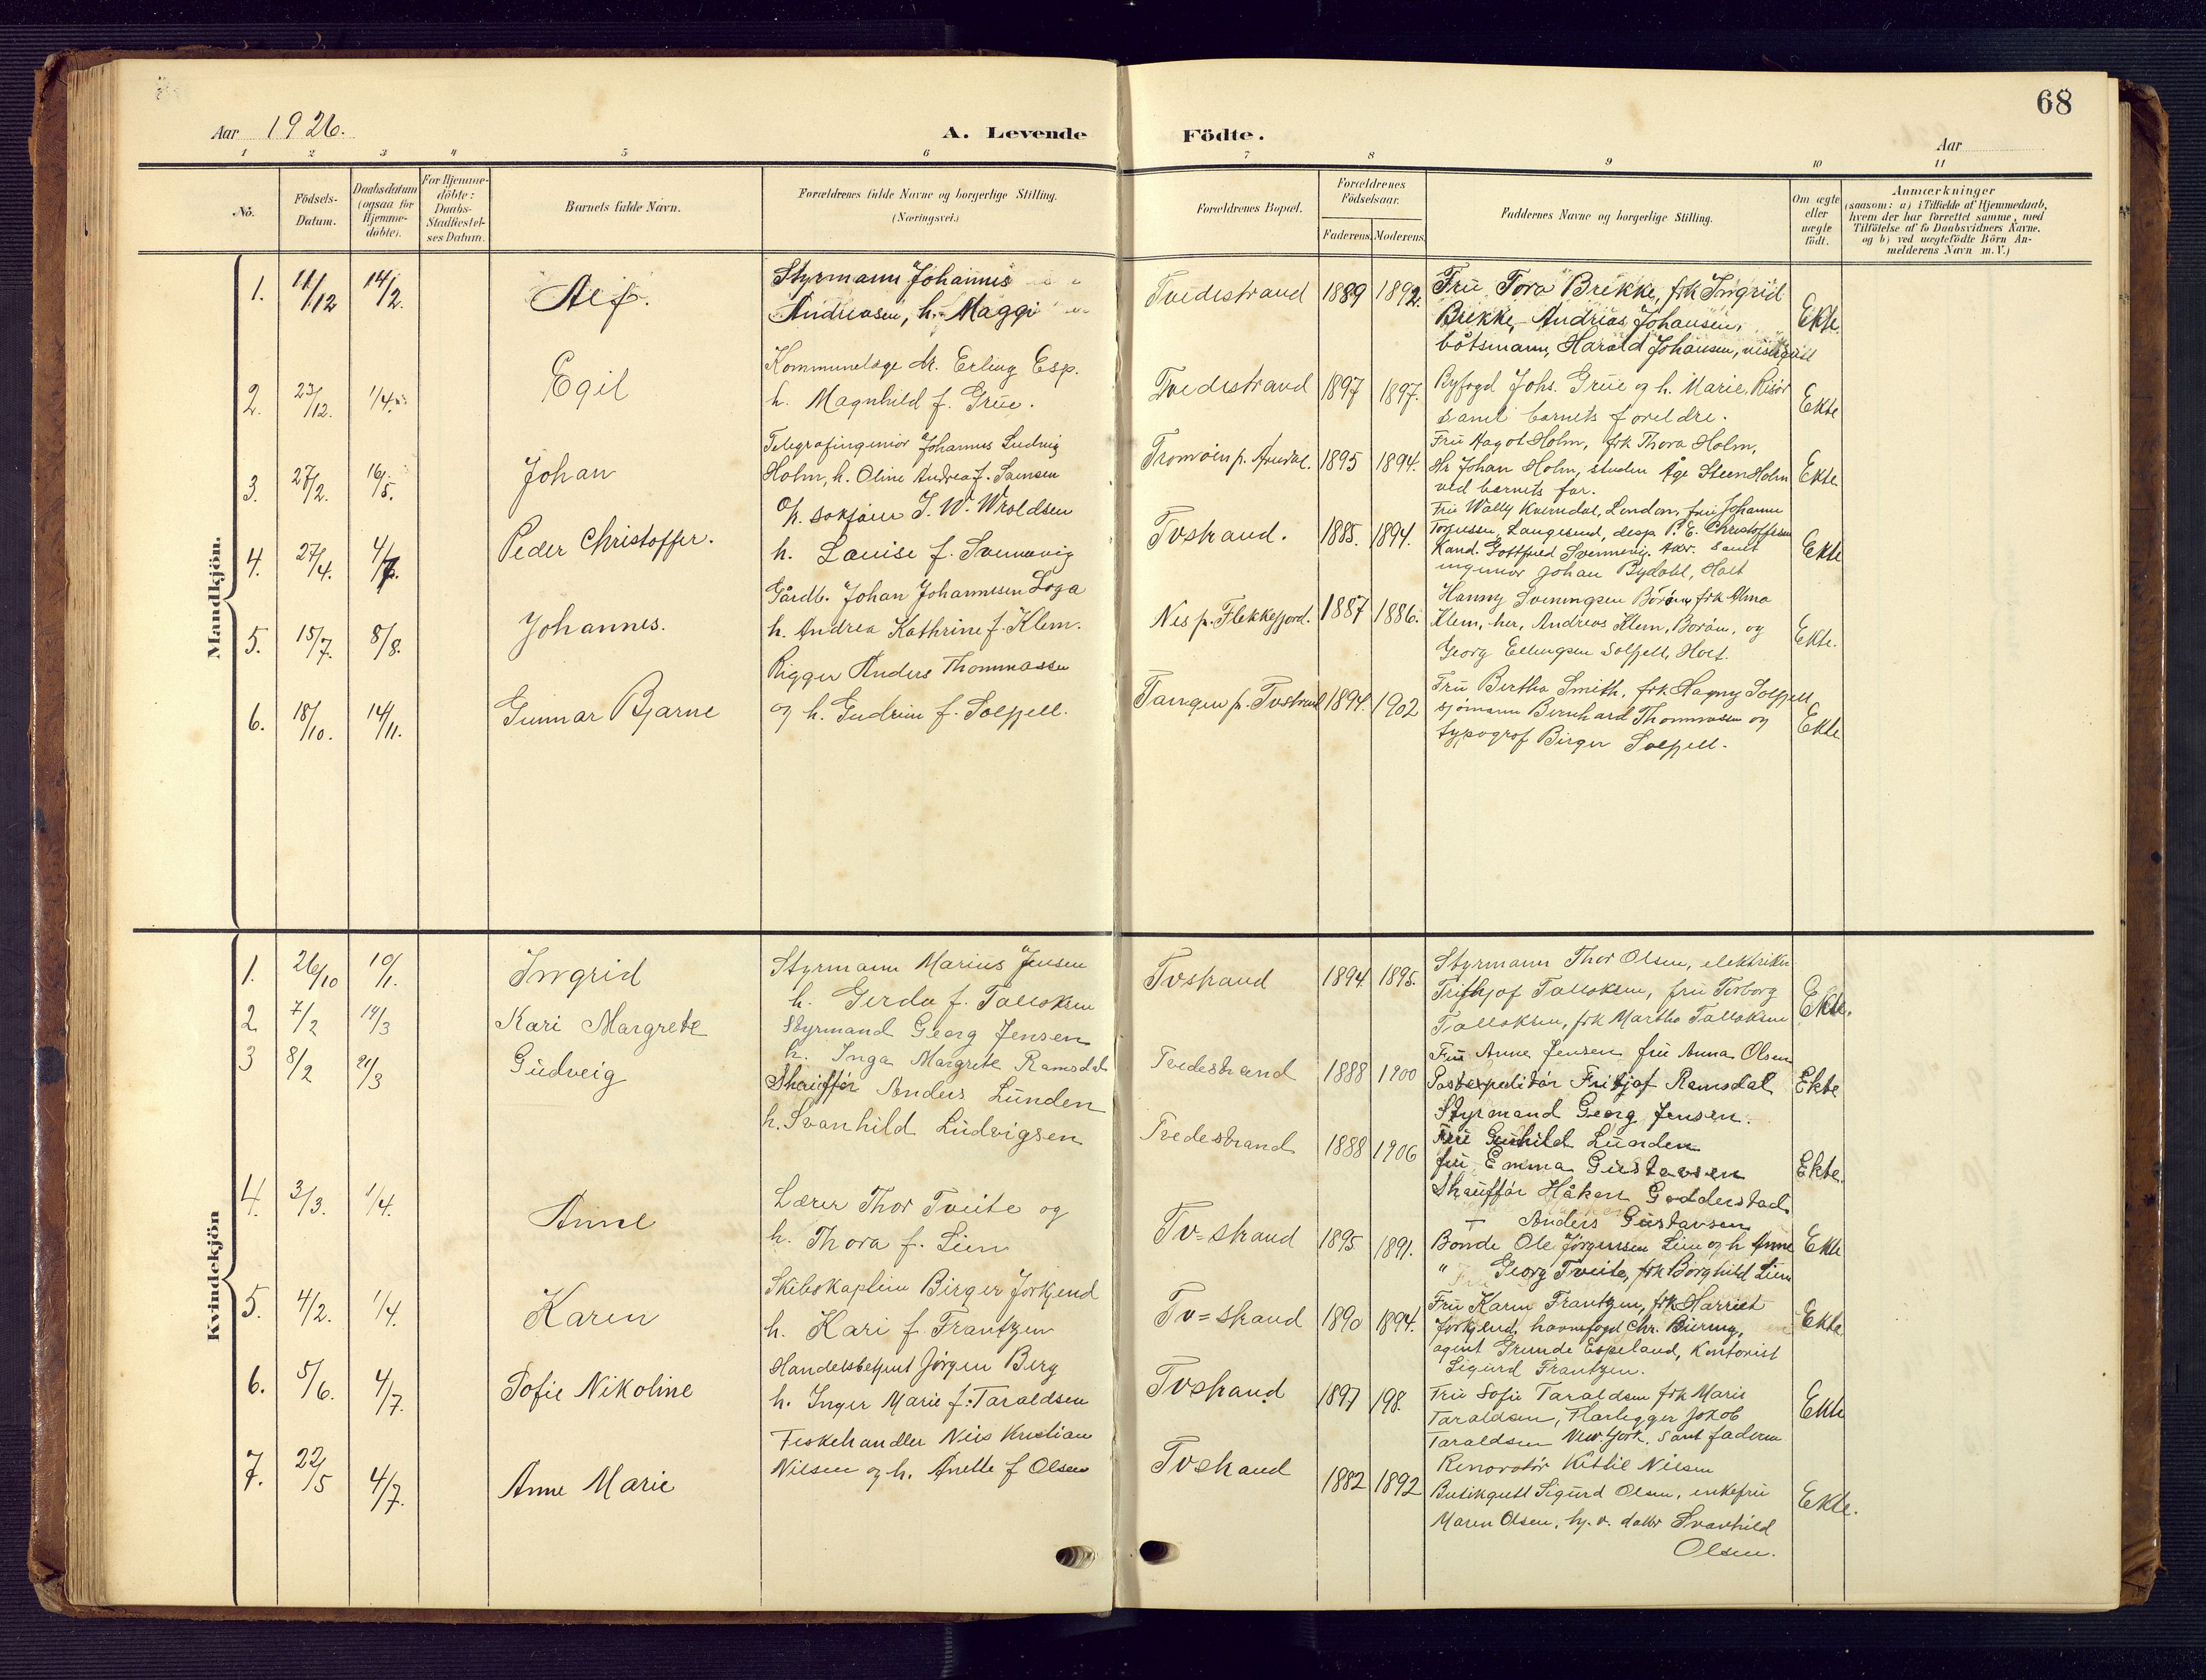 68
Aar 1926.
A. Levende Födte.
Aar
1 2 3 4 5 6 7 8 9 10 11
No.
Födsels-Datum.
Daabsdatum (ogsaa for Hjemme-döbte).
For Hjemme-döbte: Daabs-Stadfæstel-ses Datum.
Barnets fulde Navn.
Forældrenes fulde Navne og borgerlige Stilling. (Næringsvei.)
Forældrenes Bopæl.
Forældrenes Födselsaar.
Faderens. Moderens.
Faddernes Navne og borgerlige Stilling.
Om ægte eller uægte födt.
Anmærkninger
(saasom: a) i Tilfælde af Hjemmedaab,
hvem der har forrettet samme, med
Tilföielse af to Daabsvidners Navne.
og b) ved uægtefödte Börn An-
melderens Navn m.V.)
Mandkjön.
1. 11/12 14/2. Alf. Styrmann Johannes
Andreasen, h. Maggi
Tvedestrand 1889 1892.
Fru Tora Brekke, frk Ingrid
Brekke, Andreas Johansen,
båtsmann, Harald Johansen,
Ekte.
2. 23/12. 1/4. Egil
Kommunelæge Dr. Erling Esp.
h. Magnhild f. Grue.
Tvedestrand 1897 1897.
Byfogd Johs. Grue og h. Marie, Risør
samt barnets foreldre.
Ekte
3. 27/2. 16/5. Johan
Telegrafingeniør Johannes Ludvig
Holm, h. Oline Andrea f. Samsen
Tromøien p. Arendal. 1895 1894.
Fru Aagot Holm, frk Thora Holm,
Hr Johan Holm, studen Åge Steen Holm
ved barnets far.
Ekte.
4. 27/4. 4/7. Peder Christoffer.
O.r. sakfører J. W. Wroldsen
h. Louise f. Svennevig
Tvstrand. 1885. 1894.
Fru Wally Kverndal, London, fru Johanne
Torjussen, Langesund, desp. P. E. Christoffersen
Kand. Gottfred Svennevig, samt
ingeniør Johan Rydahl, Holt
Ekte
5. 15/7. 8/8. Johannes.
Gårdb. Johan Johannessen Loga
h. Andrea Kathrine f. Klem.
Nes p. Flekkefjord. 1887 1886.
Hanny Sveningsen Borøen, frk Alma
Klem, her, Andreas Klem, Borøen, og
Georg Ellingsen Solfjell, Holt.
Ekte.
6. 18/10. 14/11. Gunnar Bjarne
Rigger Anders Thommassen
og h. Gudrun f. Solfjell.
Tangen p. Tvstrand 1894. 1902
Fru Bertha Smith, frk Hagny Solfjell
sjømann Bernhard Thommasen og
typograf Birger Solfjell.
Ekte
Kvindekjön
1. 26/10 10/1. Ingrid
Styrmann Marius Jensen
h. Gerda f. Talloksen
Tvstrand 1894 1895.
Styrmann Thor Olsen, elektriker
Trithjof Talloksen, fru Torborg
Talloksen, frk Martha Talloksen
Ekte.
2. 7/2 14/3 Kari Margrete
Styrmand Georg Jensen
h. Inga Margrete Ramsdal
Tvedestrand 1888 1900
Fru Anne Jensen fru Anna Olsen
Postexpeditør Fritjof Ramsdal
Styrmand Georg Jensen.
Ekte
3 8/2 21/3 Gudveig
Shauffør Anders Lunden
h. Svanhild Ludvigsen
Tvedestrand 1888 1906
Fru Gunhild Lunden
fru Emma Gustavsen
Shauffør Håken Godderstad
Anders Gustavsen
Ekte.
4. 3/3. 1/4. Anne
Lærer Thor Tveite og
h. Thora f. Lien
Tv=strand 1895 1891.
Bonde Ole Jørgensen Lien og h Anne
" Georg Tveite, frk Borghild Lien
Ekte
5. 4/2. 1/4. Karen
Skibskaptein Birger Jorkjend
h. Kari f. Frantzen
Tv=strand 1890 1894.
Fru Karen Frantzen, frk Harriet
Jorkjend, havnefogd Chr. Biering,
agent Grunde Espeland, Kontorist
Sigurd Frantzen.
Ekte
6. 5/6. 4/7. Sofie Nikoline
Handelsbetjent Jørgen Berg
h. Inger Marie f. Taraldsen
Tvstrand 1897 198.
Fru Sofie Taraldsen frk Marie
Taraldsen, Rørlegger Jakob
Taraldsen New York. samt faderen
Ekte
7. 22/5 4/7. Anne Marie
Fiskehandler Nils Kristian
Nilsen og h. Anette f Olsen
Tvstrand 1882 1892
Renovatør Kittil Nilsen
Butikgutt Sigurd Olsen, enkefru
Maren Olsen, hj. v. datter Svanhild
Olsen.
Ekte.